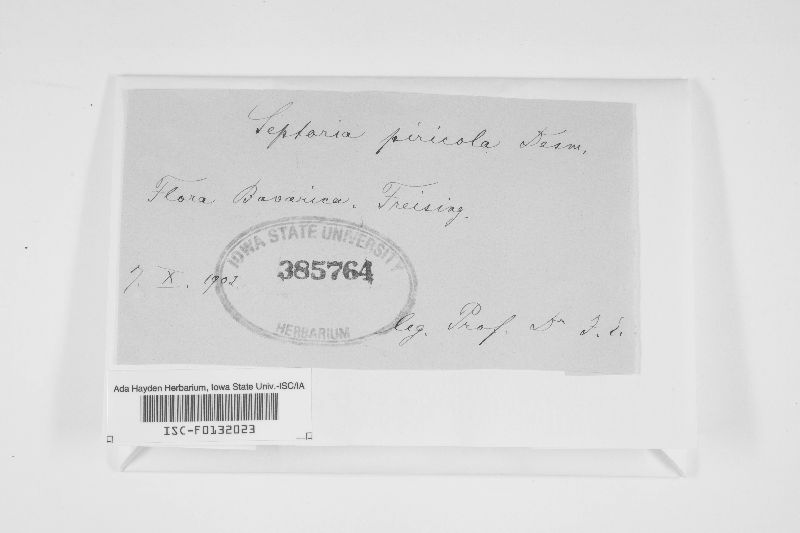 Septoria piricola Desm.
Flora Bavarica. Freising.
IOWA STATE UNIVERSITY
385764
HERBARIUM
7. X. 1902
leg. Prof. Dr
Ada Hayden Herbarium, Iowa State Univ.-ISC/IA
ISC-F0132023